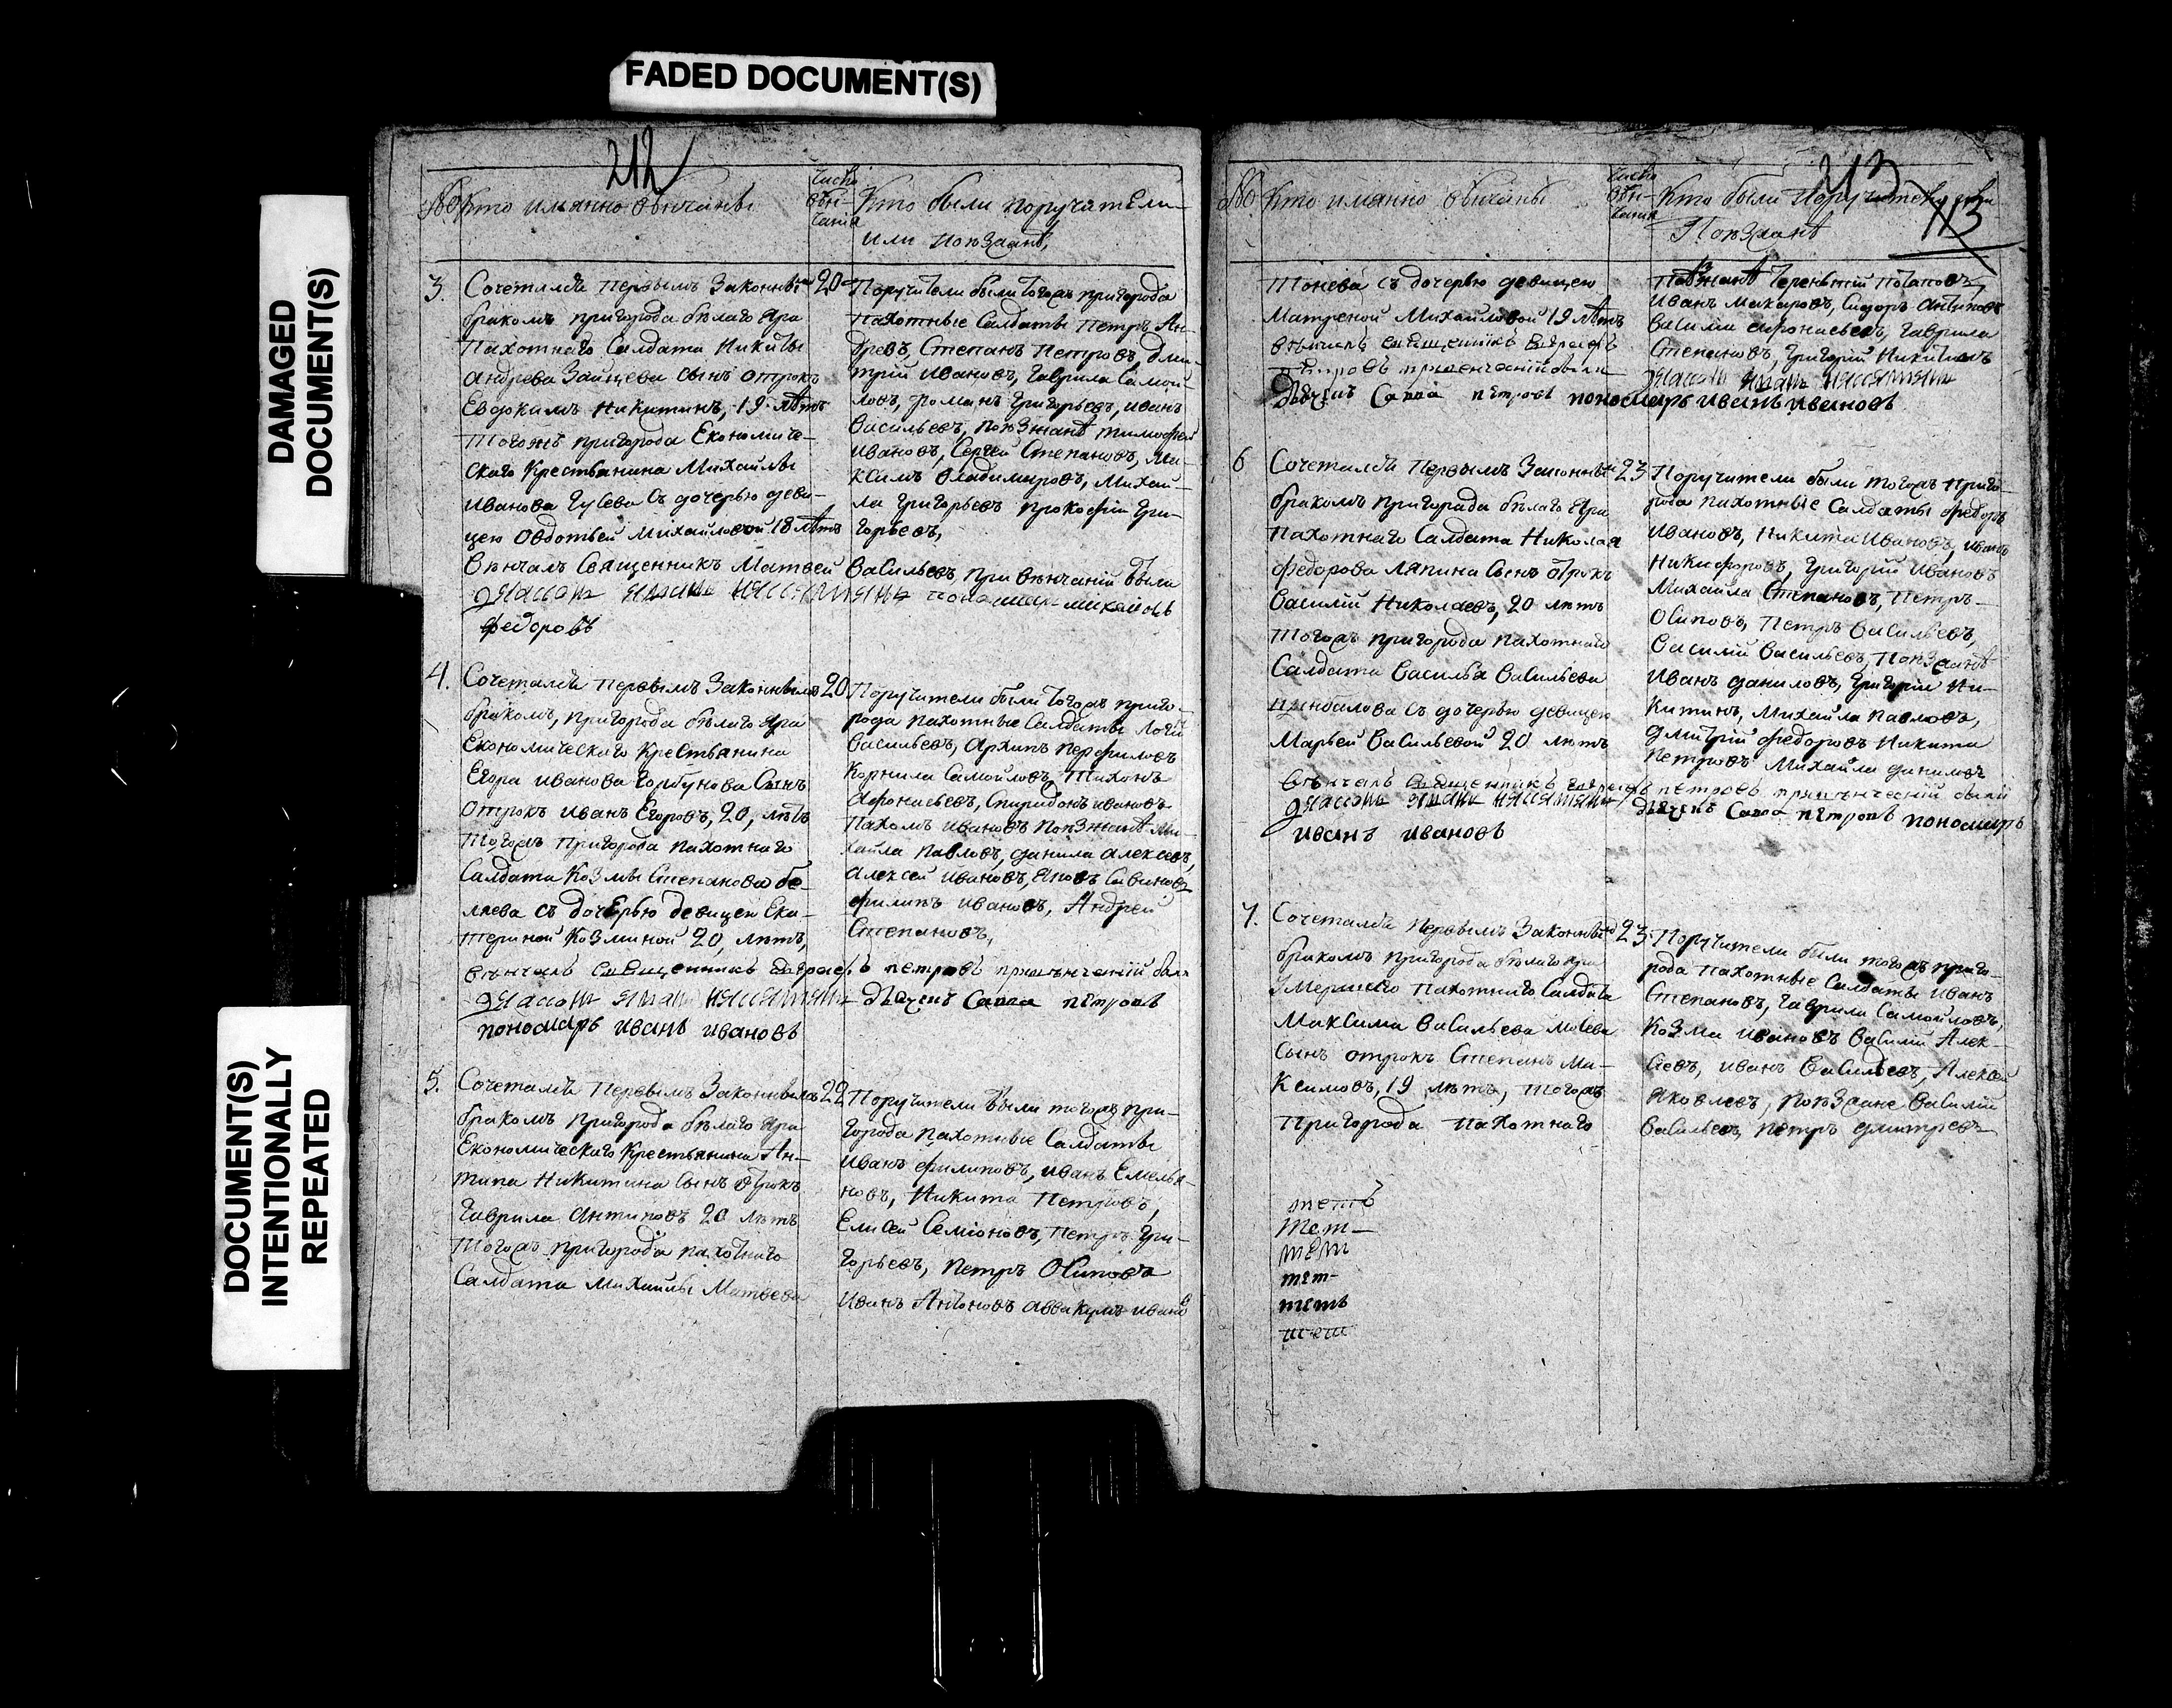 FADED DOCUMENT(S)
DAMAGED
DOCUMENT(S)
DOCUMENT(S)
INTENTIONALLY
REPEATED
212
№ Кто имянно обвѣнчаны
Число
Вѣн-
чанiя
Кто были поручители
или поѣзжанѣ
3. Сочетался первымъ законнымъ
бракомъ пригорода бѣлаго Яра
Пахотнаго Салдата Никиты
Андреева Зайцева сынъ отрокъ
Евдокимъ Никитинъ, 19 лѣтъ
тогожъ пригорода Економиче-
скаго Крестьянина Михайлы
Иванова Гусева съ дочерью деви-
цею Овдотьей Михайловой 18 лѣтъ
Вѣнчалъ Священникъ Матвей
20
Поручители были тогожъ пригорода
Пахотные Салдаты Петръ Ан-
древъ, Степанъ Петровъ, Дми-
трий Ивановъ, Гаврила Самой-
ловъ, Романъ Григорьевъ, Иванъ
Васильевъ, Поѣзжанѣ Тимофей
Ивановъ, Сергей Степановъ, Ма-
ксимъ Владимировъ, Михай-
ла Григорьевъ Прокофiй Гри-
горьевъ,
Васильевъ, при вѣнчанiй были
Федоровъ
4. Сочетался первымъ законнымъ
бракомъ, пригорода бѣлаго Яра
Економическаго Крестьянина
Егора Иванова Горбунова Сынъ
отрокъ Иванъ Егоровъ, 20, лѣтъ
тогожъ пригорода пахотнаго
Салдата Козмы Степанова бе-
ляева съ дочерью девицей Ека-
териной Козминой 20, лѣтъ,
вѣнчалъ священникъ петровъ
дьячекъ Савва петровъ
пономарь иванъ ивановъ
20
Поручители были тогожъ приго-
рода пахотные Салдаты Логiй
Васильевъ, Архипъ Перфиловъ
Корнила Самойловъ, Тихонъ
Афонасьевъ, Спиридонъ Ивановъ
Пахомъ Ивановъ Поѣзжанѣ Ми-
хайла Павловъ, Данила Алексевъ,
Алексей Ивановъ, Савиновъ
Филипъ Ивановъ, Андрей
Степановъ,
5. Сочетался первымъ законнымъ
бракомъ пригорода бѣлаго Яра
Економическаго Крестьянина Ан-
типа Никитина Сынъ отрокъ
Гаврила Антиповъ 20 лѣтъ
тогожъ пригорода пахотнаго
Салдата Михайлы Матвеева
22
Поручители были тогожъ при-
города пахотные Салдаты
Иванъ Филиповъ, Иванъ Емелья-
новъ, Никита Петровъ,
Елисей Семiоновъ, Петръ Гри-
горьевъ, Петръ Осиповъ
Иванъ Антоновъ Аввакумъ Ивановъ
213
113
№ Кто имянно обвѣнчаны
Число
Вѣн-
чания
Кто были Поручители
Поѣзжанѣ
Тонева съ дочерью девицею
Матреной Михайловой 19 лѣтъ
вѣнчалъ священникъ
петровъ
дьячекъ Савва петровъ пономарь иванъ ивановъ
Поѣзжанѣ Терентий Потаповъ,
Иванъ Макаровъ, Сидоръ Антиповъ
Василий Афонасьевъ, Гаврила
Степановъ, Григорий Никитинъ
6 Сочетался Первымъ Законнымъ
бракомъ Пригорода бѣлаго Яра
Пахотнаго Салдата Николая
Федорова Ляпина Сынъ отрокъ
Василий Николаевъ, 20 лѣтъ
тогожъ пригорода пахотнаго
Салдата Василья Васильева
Цынбалова съ дочерью девицею
Марьей Васильевой 20 лѣтъ
вѣнчалъ священникъ петровъ
дьячекъ Савва петровъ пономарь
иванъ ивановъ
23
Поручители были тогожъ приго-
рода пахотные Салдаты Федоръ
Ивановъ, Никита Ивановъ, Иванъ
Никифоровъ, Григорий Ивановъ
Михайла Степановъ, Петръ
Осиповъ, Петръ Васильевъ,
Василий Васильевъ, Поѣзжанѣ
Иванъ Даниловъ, Григорий Ни-
китинъ, Михайла Павловъ,
Дмитрiй Федоровъ Никита
Петровъ Михайла Даниловъ
7. Сочетался Первымъ Законнымъ
бракомъ пригорода бѣлаго Яра
умершаго пахотнаго Салдата
Максима Васильева
Сынъ отрокъ Степанъ Ма-
ксимовъ, 19 лѣтъ, тогожъ
Пригорода пахотнаго
23
Поручители были тогожъ приго-
рода пахотные Салдаты Иванъ
Степановъ, Гаврила Самойловъ,
Козма Ивановъ Василий Алек-
сиевъ, Иванъ Васильевъ, Алексей
Яковлевъ, поѣзжане Василий
Васильевъ Петръ Дмитревъ